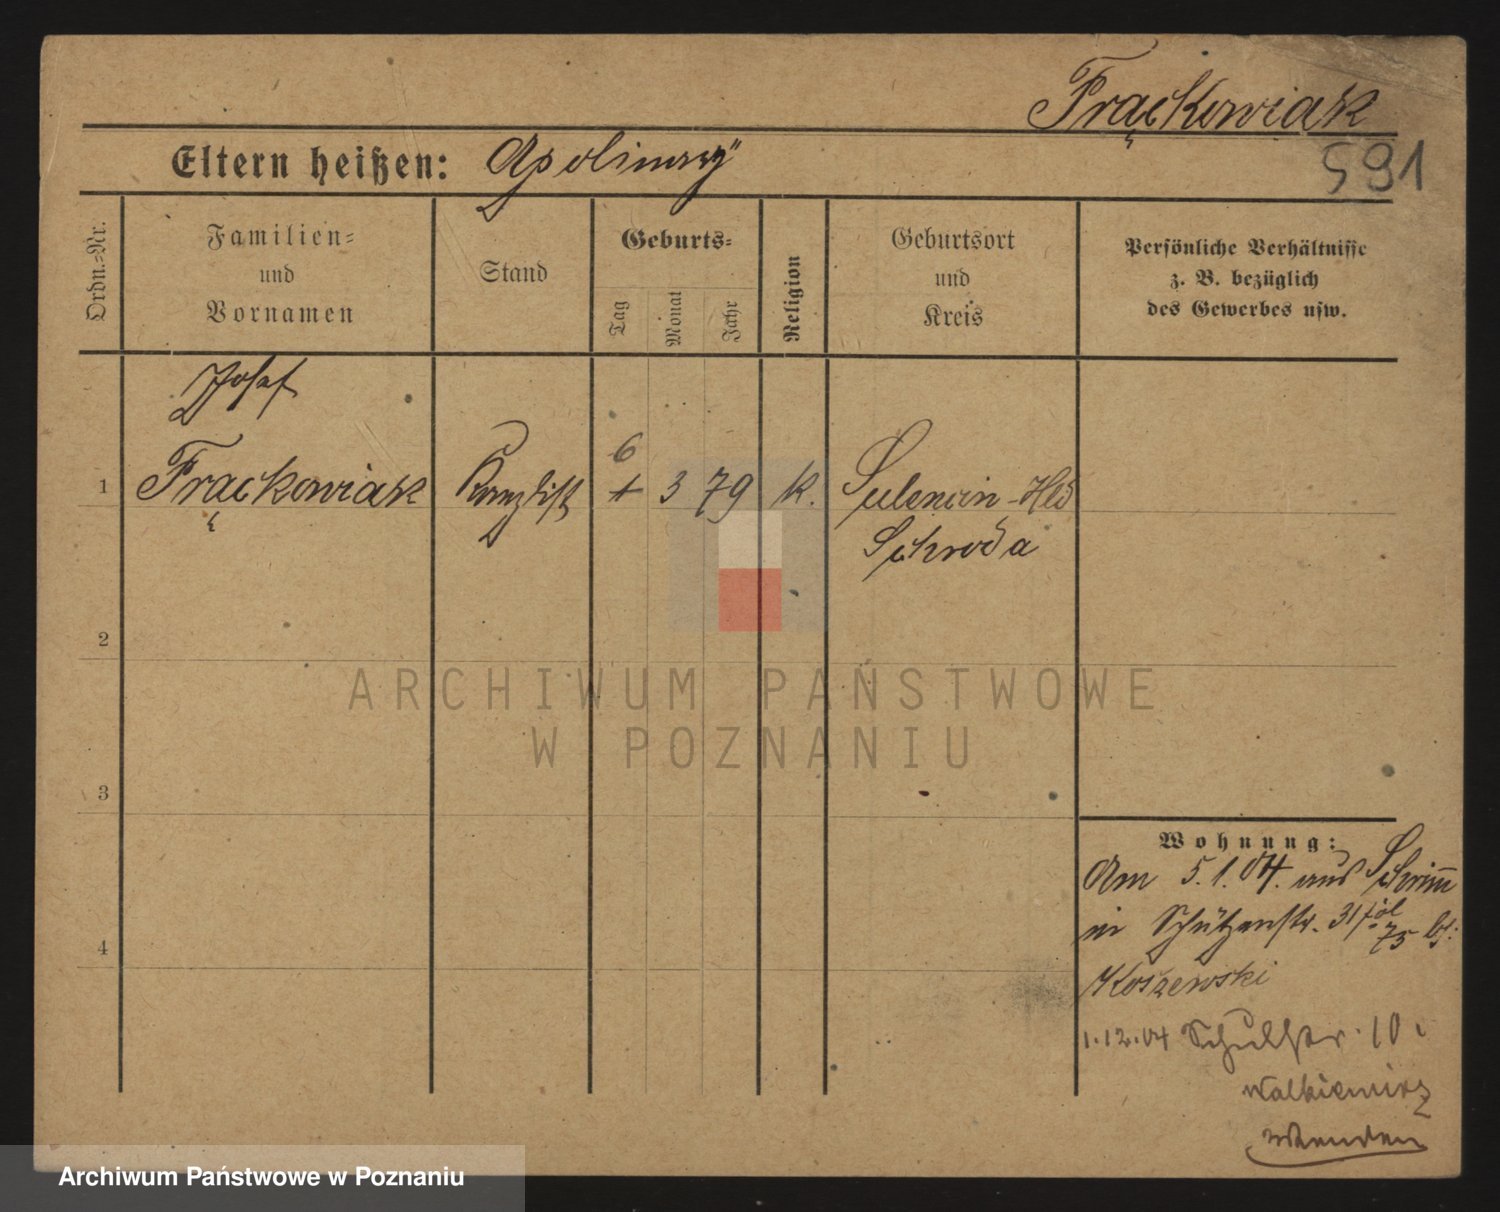 Frąckowiak
Eltern heißen: Apolinary
591
Ordn.=Nr.
Familien=
und
Vornamen
Stand
Geburts=
Tag
Monat
Jahr
Religion
Geburtsort
und
Kreis
Persönliche Verhältnisse
z. B. bezüglich
des Gewerbes usw.
Josef
6
1 Frąckowiak Kanzlist 3 79 k. Sulencin-Hld
Schroda
2
ARCHIWUM PAŃSTWOWE
W POZNANIU
3
Wohnung:
Am 5.1.04. aus Schrimm
in Schützenstr. 31
75 bei
Koszewski
1.12.04 Schulstr. 10
Walkiewicz
Wenden
4
Archiwum Państwowe w Poznaniu